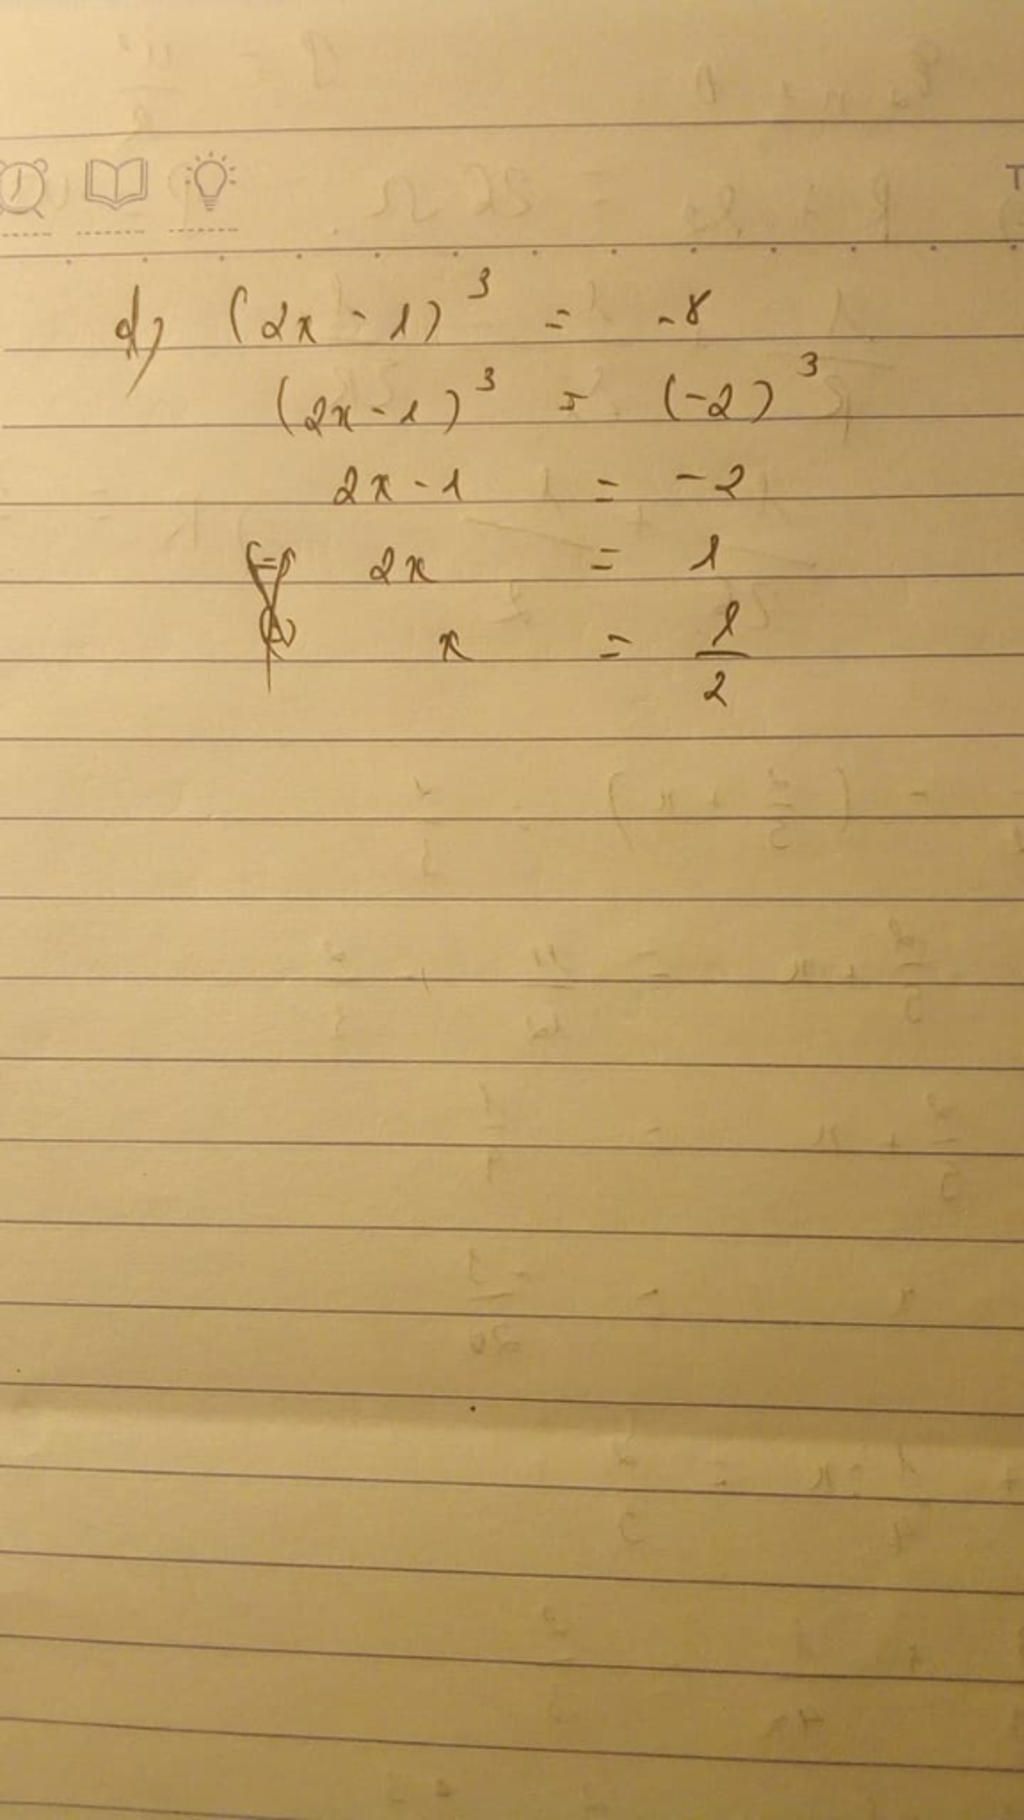 d) (2x - 1)³ = -8
(2x - 1)³ = (-2)³
2x - 1 = -2
2x = 1
x = 1/2